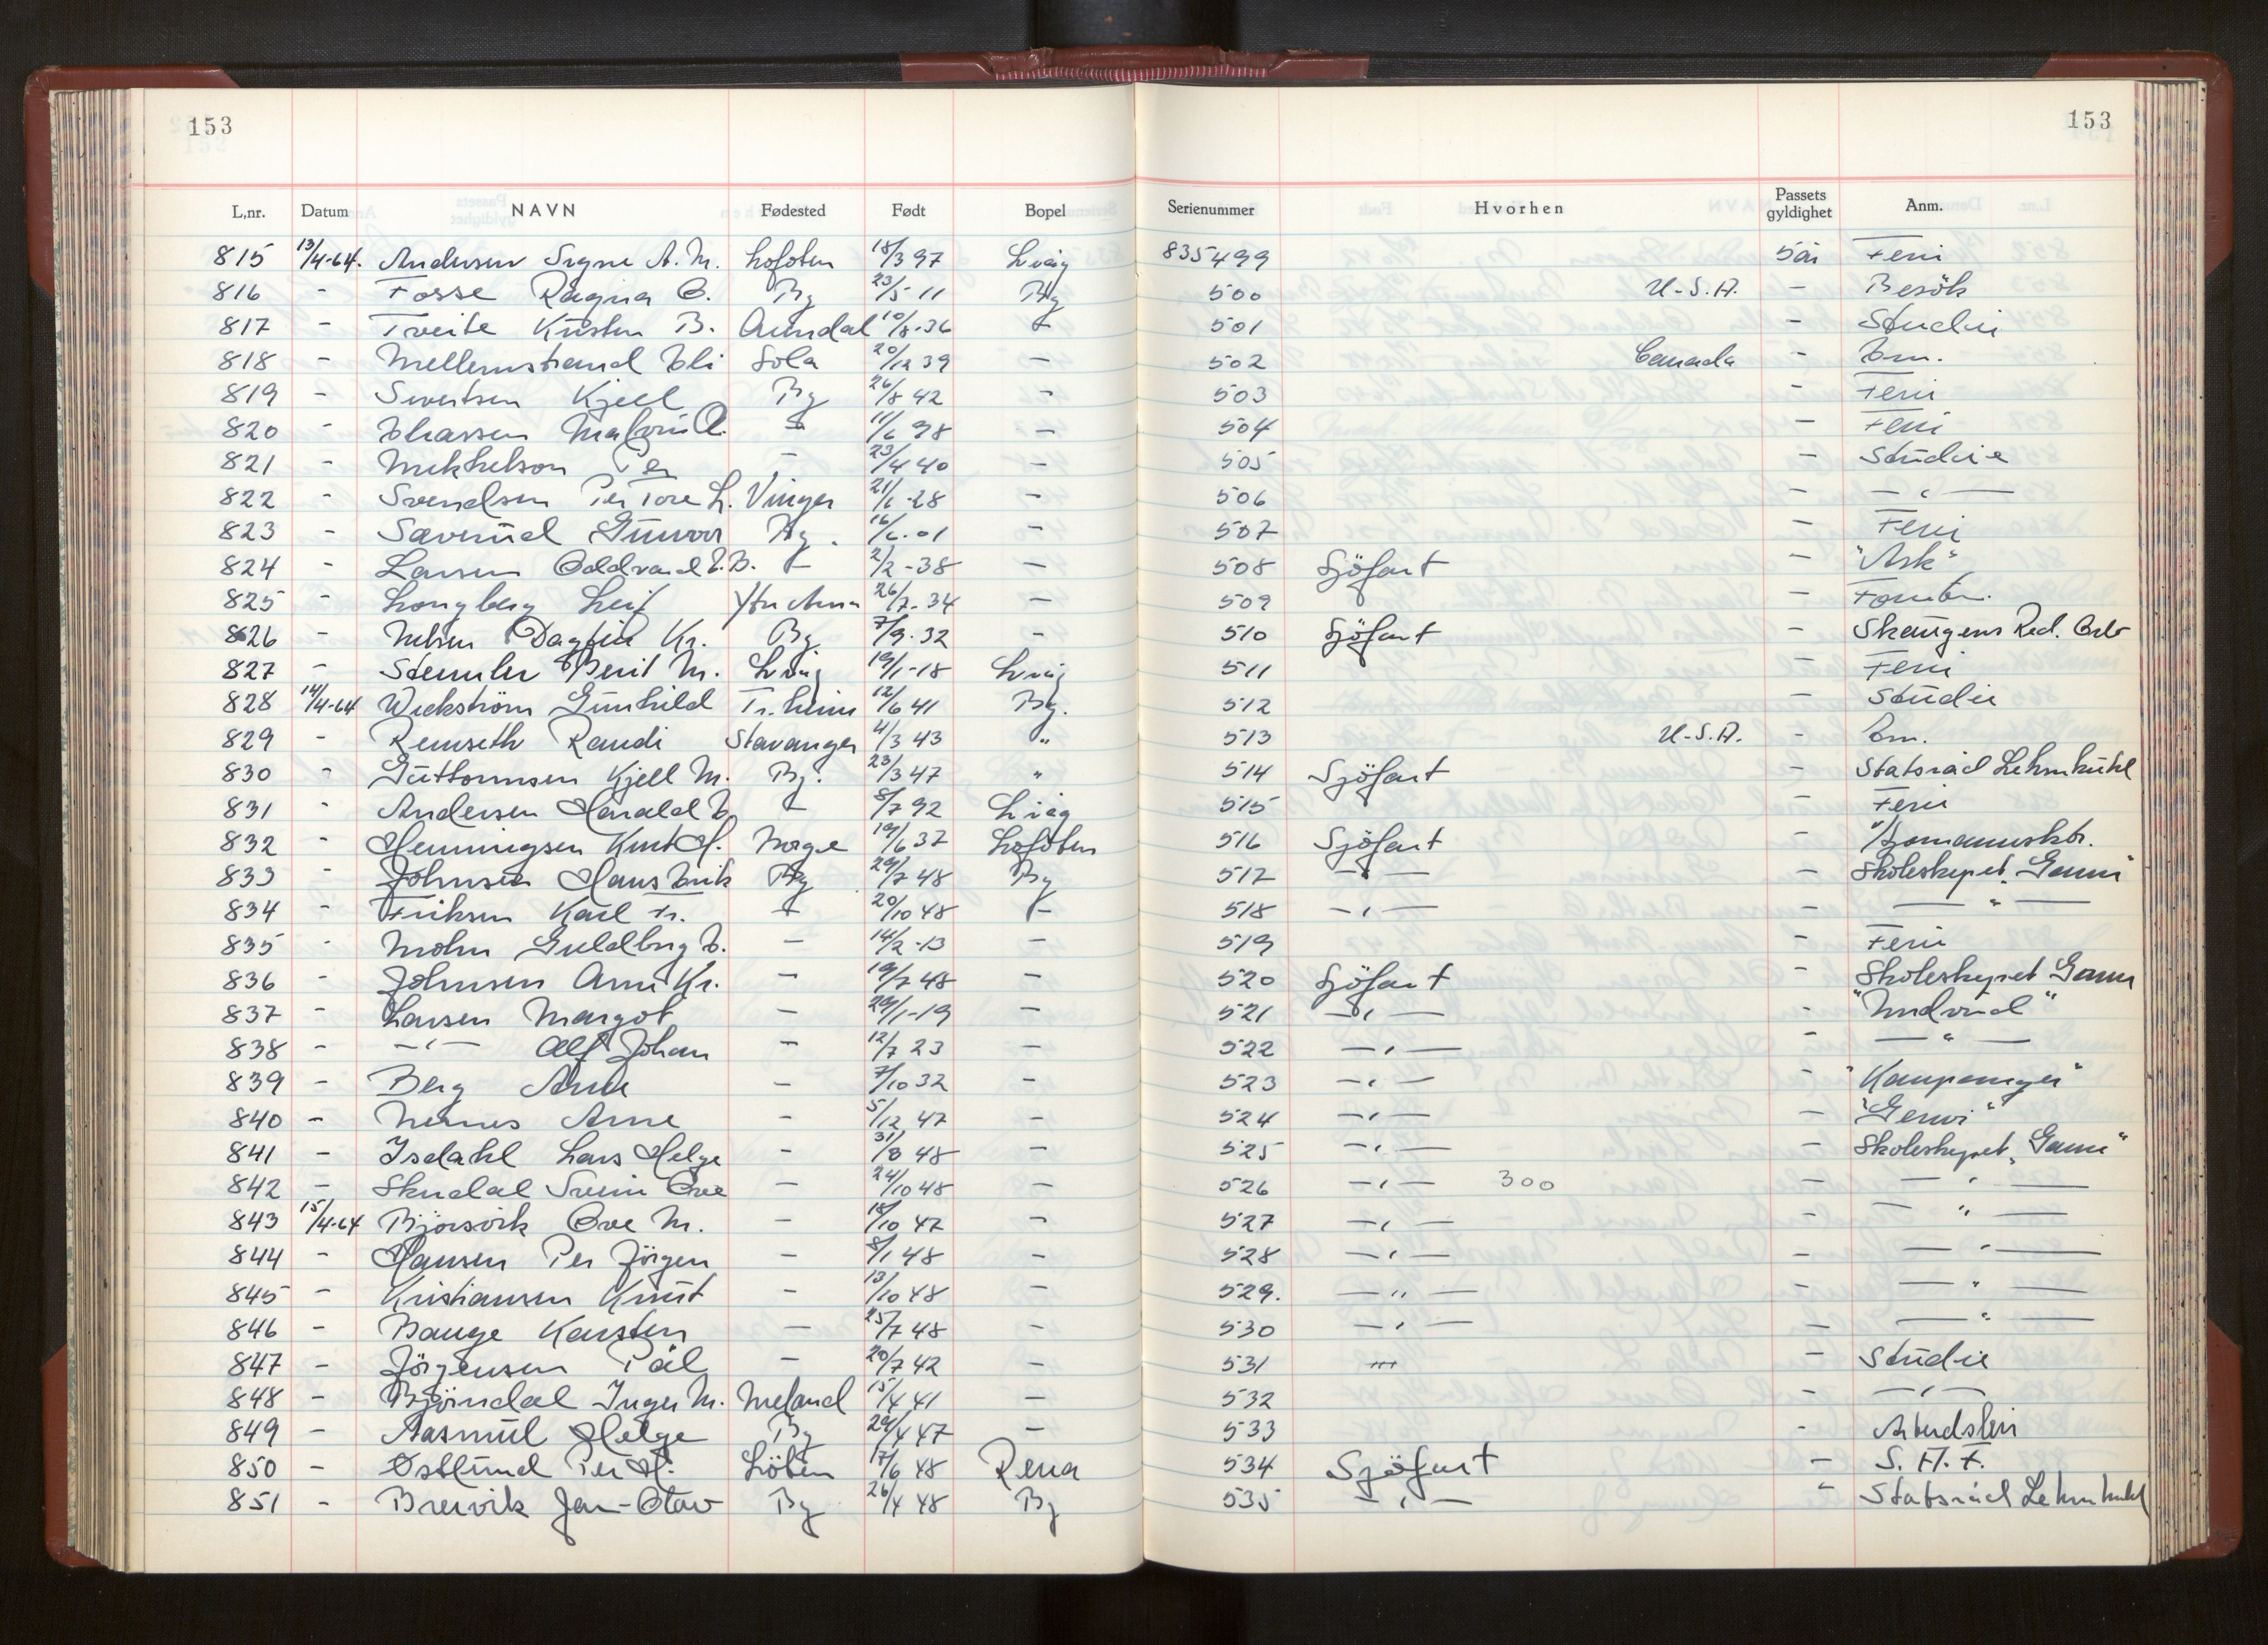 153 153
L,nr. Datum NAVN Fødested Født Bopel Serienummer Hvorhen Passets gyldighet Anm.
815 13/4-64. Andersen Signe A. M. Lofoten 18/3 97 Lvåg 835499 5 år Feri
816 - Fosse Ragna O. Bg 23/5 11 Bg 500 U.S.A. - Besök
817 - Tveite Kirsten B. Arendal 10/8-36 501 - Studie
818 - Mellemstrand Eli Sola 20/12 39 - 502 Canada - Em.
819 - Sivertsen Kjell Bg 26/8 42 - 503 - Feri
820 - Eliassen Malvin 11/6 98 - 504 - Feri
821 - Mikkelson Per - 23/4 40 - 505 - Studie
822 - Svendsen Per Tore L. Vinger 21/6-28 - 506 - -"-
823 - Sæverud Gunvor Bg. 16/6.01 - 507 - Feri
824 - Larsen Oddvard E.B. 2/2-38 - 508 Sjöfart - "Ask"
825 - Longberg Leif Ytre Arna 26/7-34 - 509 -
826 - Nilsen Dagfin Kr. Bg. 7/9-32 - 510 Sjöfart - Skaugens Red. Oslo
827 - Stemler Berit M. Lvåg 19/1-18 Lvåg 511 - Feri
828 14/4-64 Wickström Gunhild Tr.heim 12/6 41 Bg. 512 - Studie
829 - Remseth Randi Stavanger 4/3 43 " 513 U.S.A. - Em.
830 - Guttormsen Kjell M. Bg. 23/3 47 " 514 Sjöfart - Statsråd Lehmkuhl
831 - Andersen Harald E. 8/7 92 Lvåg 515 - Feri
832 - Henningsen Knut H. Norge 19/6 37 Lofoten 516 Sjöfart - Sjömannsktr.
833 - Johnsen Hans Erik Bg 29/7 48 Bg 517 -"- - Skoleskipet "Gann"
834 - Eriksen Karl Fr. 20/10 48 518 -"- - -"-
835 - Mohn Guldborg E. - 14/2-13 - 519 - Feri
836 - Johnsen Arne Kr. - 19/7 48 - 520 Sjöfart - Skoleskipet Gann
837 - Larsen Margot - 29/1-19 - 521 -"- - "Nudvind"
838 - -"- Alf Johan - 12/7 23 522 -"- - -"-
839 - Berg Arne - 7/10 32 - 523 -"- - "Kaupanger"
840 - Arne - 5/12 47 - 524 -"- - "Gerwi"
841 - Isdahl Lars Helge - 31/8 48 - 525 -"- - Skoleskipet "Gann"
842 - Skudal Svein Ove - 24/10 48 - 526 -"- 300 - -"-
843 15/4-64 Björsvik Ove M. - 18/10 47 - 527 -"- - -"-
844 - Hansen Per Jörgen - 8/1 48 - 528 -"- - -"-
845 - Kristiansen Knut - 13/10 48 - 529. -"- - -"-
846 - Bauge Karsten - 25/7 48 - 530 -"- - -"-
847 - Jörgensen Pål - 20/7 42 - 531 - Studie
848 - Björndal Inger M. Meland 15/4 41 - 532 - -"-
849 - Aasmul Helge Bg 29/4 47 - 533 -
850 - Østlund Per H. Löten 17/6 48 Rena 534 Sjöfart - S. H. F.
851 - Brevik Jan-Olav Bg 26/4 48 Bg 535 -"- - Statsråd Lehmkuhl